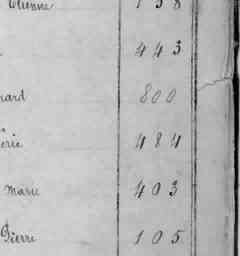 Etienne 138
443
nard 800
érie 484
Marie 403
Pierre 105